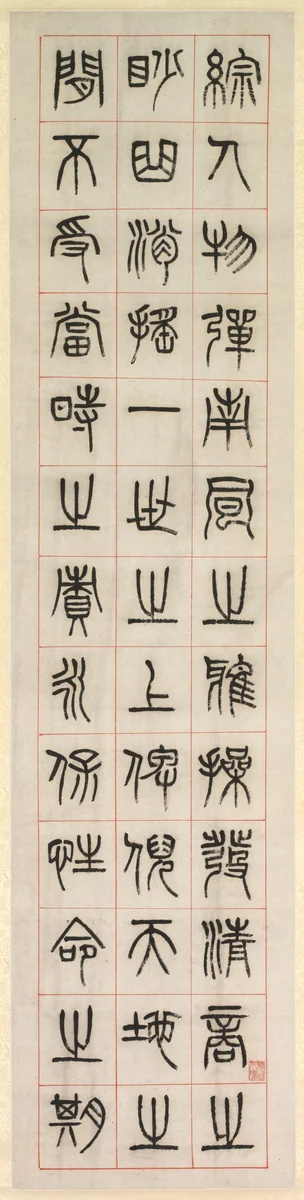 綜人物彈南風之雅操發清商之
眇曲消搖一世之上俾倪天地之
閒不受當時之責永保性命之期